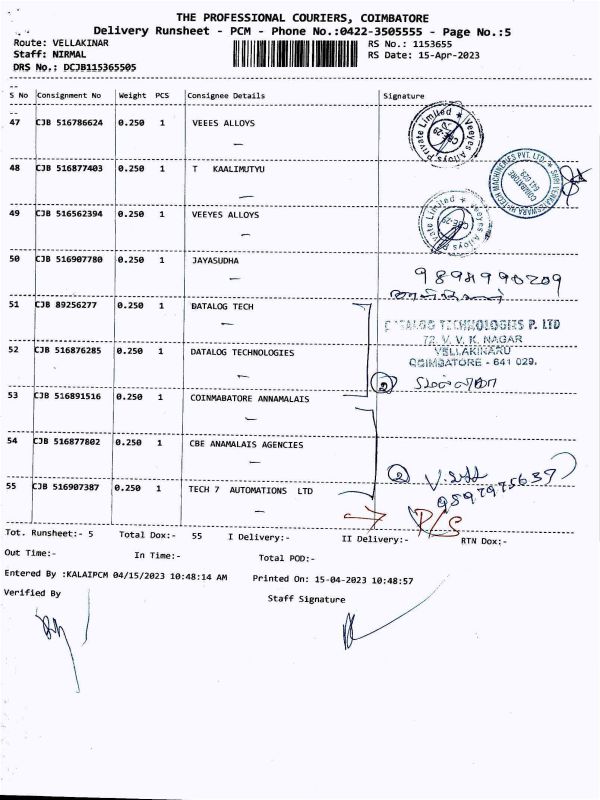 THE PROFESSIONAL COURIERS, COIMBATORE
Delivery Runsheet - PCM - Phone No.:0422-3505555 - Page No.:5
Route: VELLAKINAR RS No.: 1153655
Staff: NIRMAL RS Date: 15-Apr-2023
DRS No.: DCJB115365505
S No Consignment No Weight PCS Consignee Details Signature
47 CJB 516786624 0.250 1 VEEES ALLOYS
Veeyes Alloys Private Limited ★ CBE-29
48 CJB 516877403 0.250 1 T KAALIMUTYU
SHRI VENKATESWARA HI-TECH MACHINERIES PVT. LTD. ★
COIMBATORE
641 029
49 CJB 516562394 0.250 1 VEEYES ALLOYS
Veeyes Alloys Private Limited ★ CBE-29
50 CJB 516907780 0.250 1 JAYASUDHA
9894990209
51 CJB 89256277 0.250 1 DATALOG TECH
DATALOG TECHNOLOGIES P. LTD
72, V. V. K. NAGAR
52 CJB 516876285 0.250 1 DATALOG TECHNOLOGIES
VELLAKINARU
COIMBATORE - 641 029.
2
53 CJB 516891516 0.250 1 COINMABATORE ANNAMALAIS
54 CJB 516877802 0.250 1 CBE ANAMALAIS AGENCIES
2
55 CJB 516907387 0.250 1 TECH 7 AUTOMATIONS LTD
P/S
Tot. Runsheet:- 5 Total Dox:- 55 I Delivery:- II Delivery:- RTN Dox:-
Out Time:- In Time:- Total POD:-
Entered By :KALAIPCM 04/15/2023 10:48:14 AM Printed On: 15-04-2023 10:48:57
Verified By Staff Signature